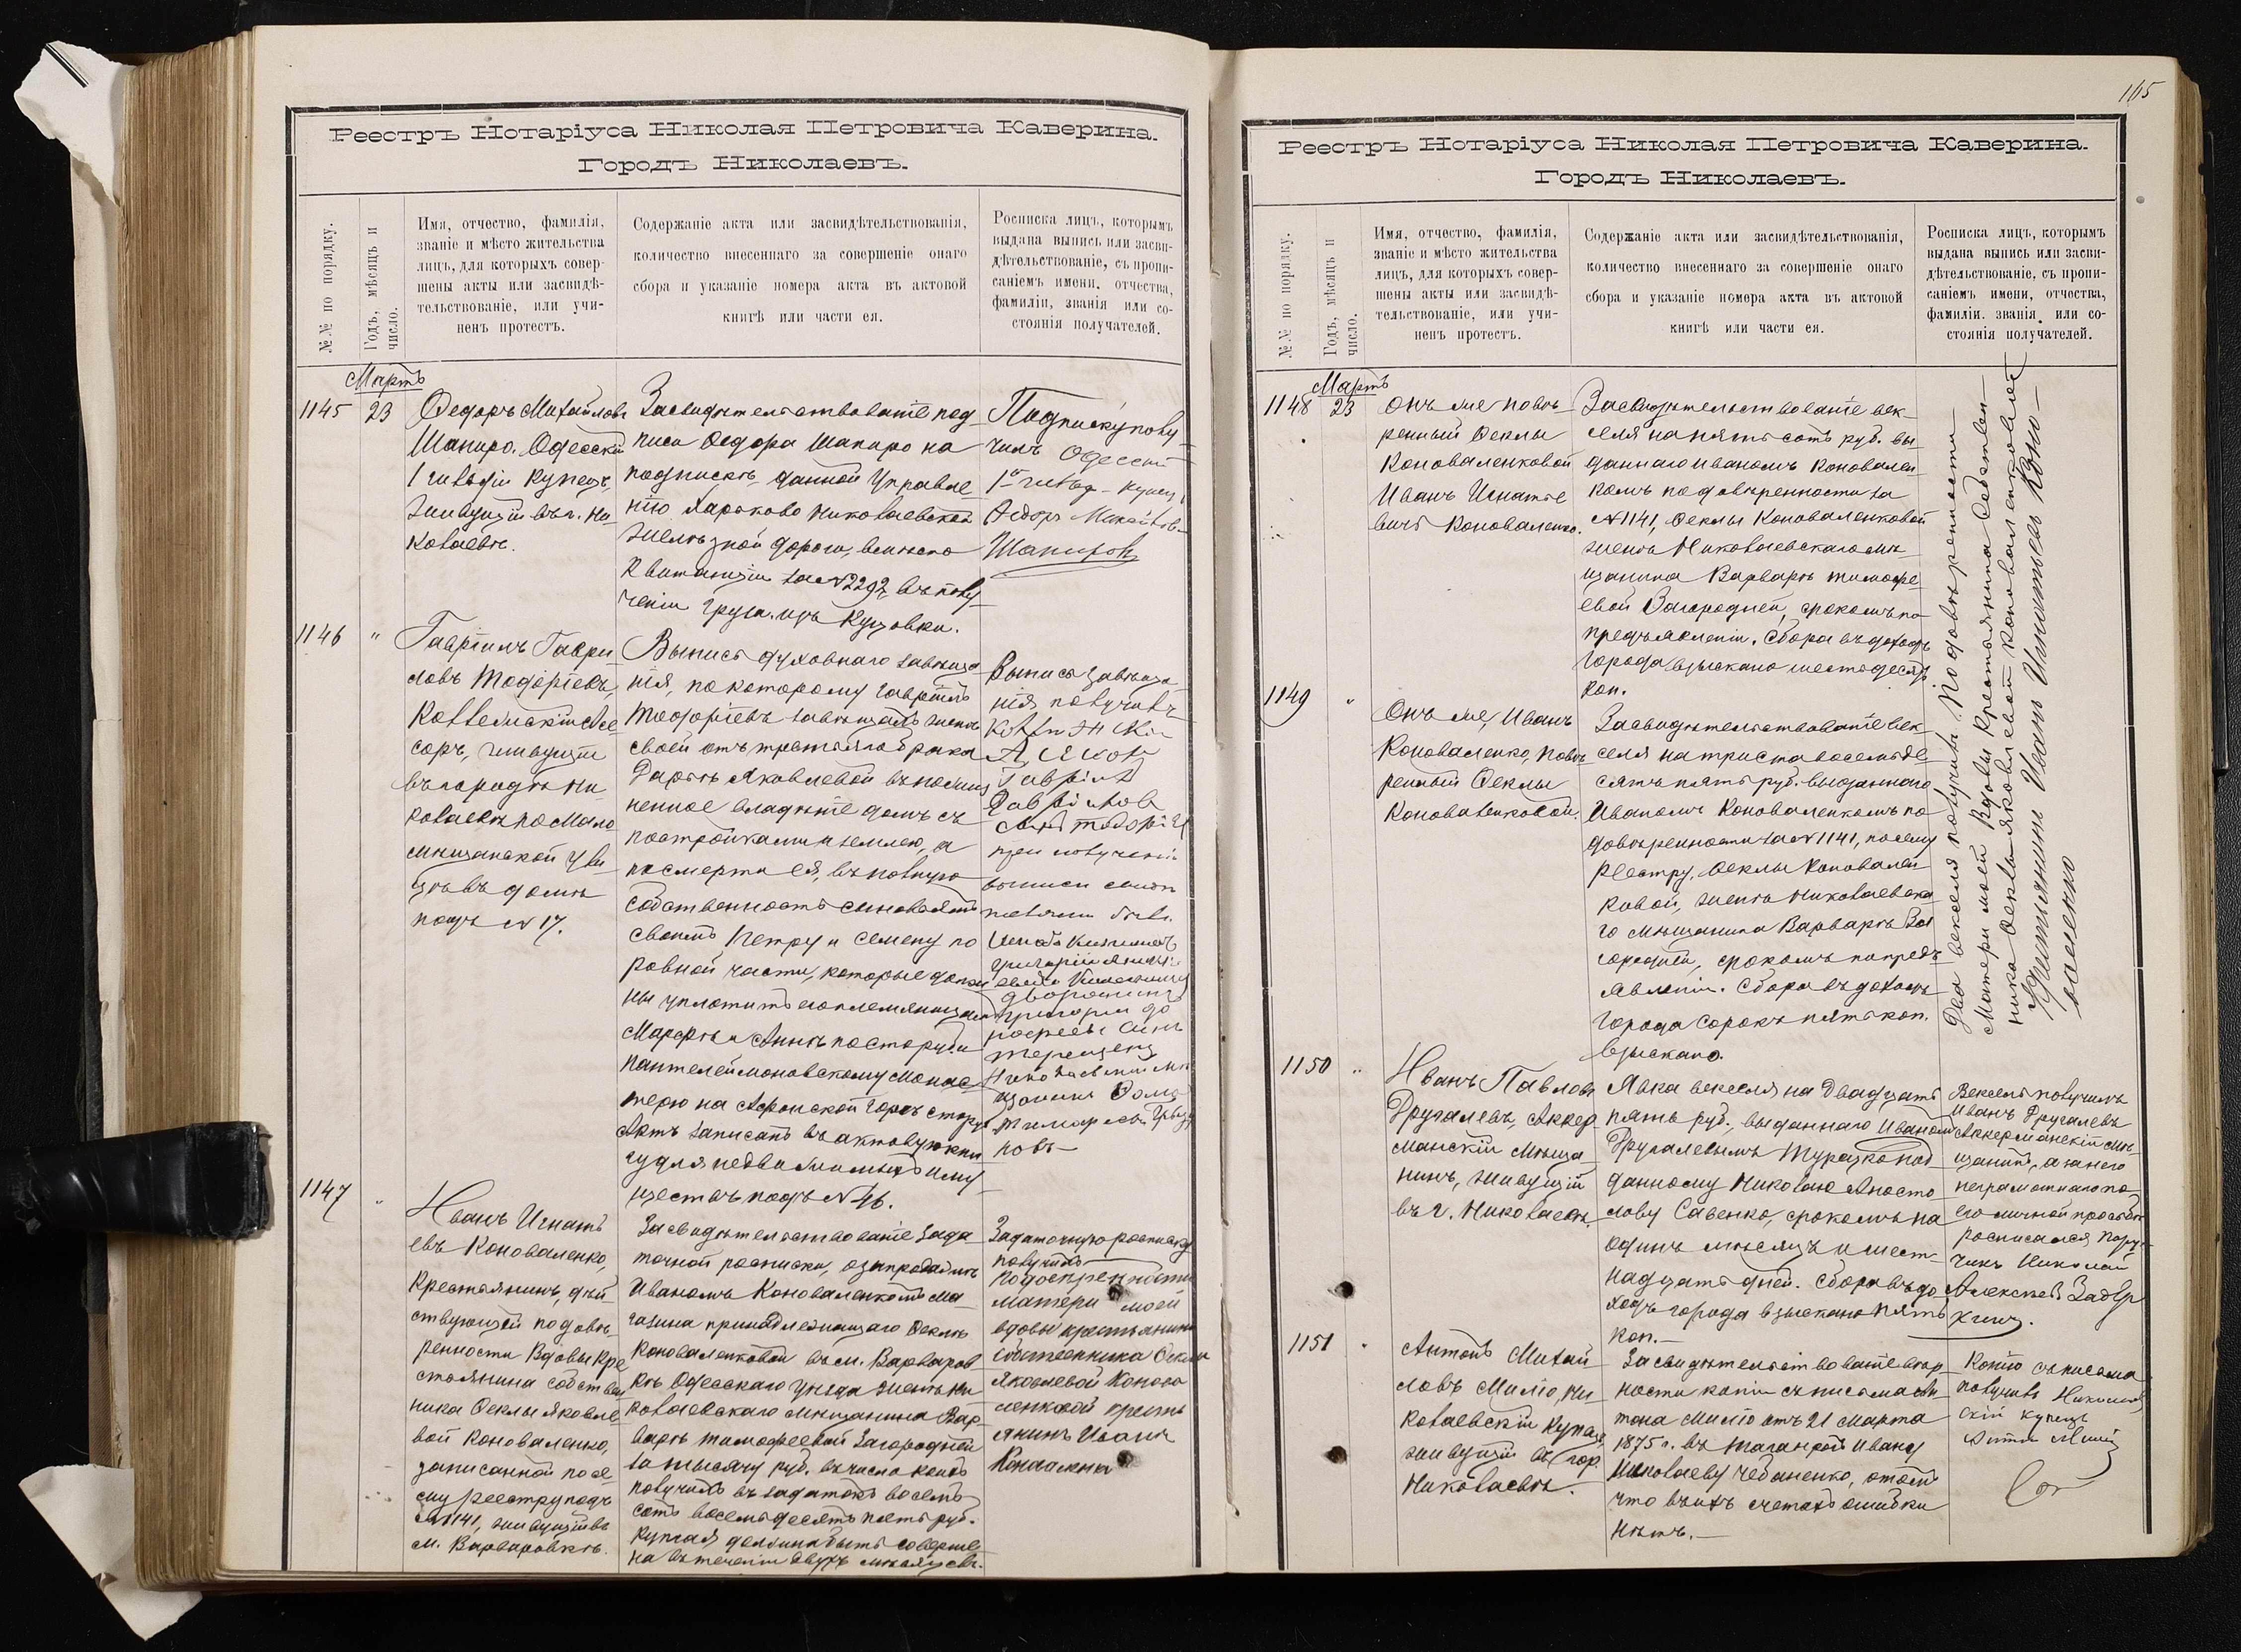 Реестръ Нотаріуса Николая Петровича Каверина.
Городъ Николаевъ.
№№ по порядку.
Годъ, мѣсяцъ и
число.
Имя, отчество, фамилія,
званіе и мѣсто жительства
лицъ, для которыхъ совер-
шены акты или засвидѣ-
тельствованіе, или учи-
ненъ протестъ.
Содержаніе акта или засвидѣтельствованія,
количество внесеннаго за совершеніе онаго
сбора и указаніе номера акта въ актовой
книгѣ или части ея.
Росписка лицъ, которымъ
выдана выпись или засви-
дѣтельствованіе, съ пропи-
саніемъ имени, отчества,
фамиліи, званія или со-
стоянія получателей.
Мартъ
1145
23
Федоръ Михайловъ
Шапиро. Одесскій
1 гильдіи купецъ,
живущій въ г. Ни
колаевѣ.
Засвидѣтельствованіе под
писи Федора Шапиро на
подпискѣ, данной Управле
нію Харьково Николаевской
желѣзной дороги, вмѣсто
квитанціи за №2292 въ полу
ченіи груза изъ Куцовки.
Подписку полу
чилъ Одесскій
1ой гильд. купец
Федоръ Михайлов
Шапировъ
1146
"
Гавріилъ Гаври
ловъ Тодоріевъ,
Коллежскій Асе
соръ, живущій
въ городѣ Ни
колаевѣ по Мало
мѣщанской ули
цѣ въ домѣ
подъ № 17.
Выпись духовнаго завѣща
нія, по которому Гавріилъ
Тодоріевъ завѣщалъ женѣ
своей отъ третьяго брака
Дарьѣ Яковлевой въ пожиз
ненное владѣніе домъ съ
постройками и землею, а
по смерти ея, въ полную
собственность сыновьямъ
своимъ Петру и Семену по
ровной части, которые долж
ны уплотить его племянницамъ
Марфѣ и Аннѣ по сто руб. и
Пантелеймоновскому Монас
терю на Афонской Горѣ сто руб
Актъ записанъ въ актовую кни
гу для недвижимыхъ иму
ществъ подъ № 46.
Выпись завѣща
нія получилъ
Гавріилъ
Гавріилов
сынъ Тодоріев
при полученіи
выписи
дворянинъ
Григорій До
рофеевъ сынъ
Терещенко
Николаевскій мѣ
щанинъ
1147
"
Иванъ Игнать
евъ Коноваленко,
Крестьянинъ, дѣй
ствующій по довѣ
ренности Вдовы Кре
стьянина Собствен
ника Феклы Яковле
вой Коноваленко,
записанной по се
му реестру подъ
№1141, живущій въ
м. Варваровкѣ.
Засвидѣтельствованіе Зада
точной росписки, о запродажѣ
Иваномъ Коноваленкомъ ма
газина принадлежащаго Феклѣ
Коноваленковой въ м. Варваров
кѣ Одесскаго уѣзда женѣ Ни
колаевскаго мѣщанина Вар
варѣ Тимофеевой Загородней
за тысячу руб. въ число коихъ
получилъ въ задатокъ восемь
сотъ восемьдесятъ пять руб.
Купчая должна быть соверше
на въ теченіи двухъ мѣсяцевъ.
Задаточную росписку
получилъ
по доверенности
матери моей
вдовы крестьянина
собственника Феклы
Яковлевой Конова
ленковой крестья
янинъ Иванъ
Коноваленко
165
Реестръ Нотаріуса Николая Петровича Каверина.
Городъ Николаевъ.
№№ по порядку.
Годъ, мѣсяцъ и
число.
Имя, отчество, фамилія,
званіе и мѣсто жительства
лицъ, для которыхъ совер-
шены акты или засвидѣ-
тельствованіе, или учи-
ненъ протестъ.
Содержаніе акта или засвидѣтельствованія,
количество внесеннаго за совершеніе онаго
сбора и указаніе номера акта въ актовой
книгѣ или части ея.
Росписка лицъ, которымъ
выдана выпись или засви-
дѣтельствованіе, съ пропи-
саніемъ имени, отчества,
фамиліи. званія или со-
стоянія получателей.
Мартъ
1148
23
Онъ же повѣ
ренный Феклы
Коноваленковой
Иванъ Игнатье
вичъ Коноваленко.
Засвидѣтельствованіе век
селя на пять сотъ руб. вы
даннаго Иваномъ Коновален
комъ по довѣренности за
№1141, Феклы Коноваленковой
женѣ Николаевскаго мѣ
щанина Варварѣ Тимофе
евой Загородней, срокомъ по
предъявленіи. Сбора въ доходъ
города взыскано шестьдесятъ
коп.
Два векселя получилъ по довѣренности
матери моей вдовы крестьянина собствен
ника Феклы Яковлевой Коноваленковой
крестьянинъ Иванъ Игнатьевъ Коно
валенко
1149
"
Онъ же, Иванъ
Коноваленко, повѣ
ренный Феклы
Коноваленковой.
Засвидѣтельствованіе век
селя на триста восемьде
сятъ пять руб. выданнаго
Иваномъ Коноваленкомъ по
довѣренности за №1141, по сему
реестру, Феклы Коновален
ковой, женѣ Николаевска
го мѣщанина Варварѣ За
городней, срокомъ по предъ
явленіи. Сбора въ доходъ
города сорокъ пять коп.
взыскано.
1150
"
Иванъ Павловъ
Другалевъ, Аккер
манскій мѣща
нинъ, живущій
въ г. Николаевѣ.
Явка векселя на двадцать
пять руб., выданнаго Иваномъ
Другалевымъ Турецкопод
данному Николаю Апосто
лову Савенко, срокомъ на
одинъ мѣсяцъ и шест
надцать дней. Сбора въ до
ходъ города взыскано пять
коп.
Вексель получилъ
Иванъ Другалевъ
Аккерманскій мѣ
щанинъ, а за него
неграмотнаго по
его личной просьбѣ
росписался Пору
чикъ Николай
Алексѣевъ
1151
"
Антонъ Михай
ловъ Миліо, Ни
колаевскій купецъ,
живущій въ гор.
Николаевѣ.
Засвидѣтельствованіе вѣр
ности копіи съ письма Ан
тона Миліо отъ 21 Марта
1875 г. въ Таганрогъ Ивану
Николаеву Чебаненко, о томъ
что въ ихъ счетахъ ошибки
нѣтъ.
Копію съ письма
получилъ Николаев
скій купецъ
Антон